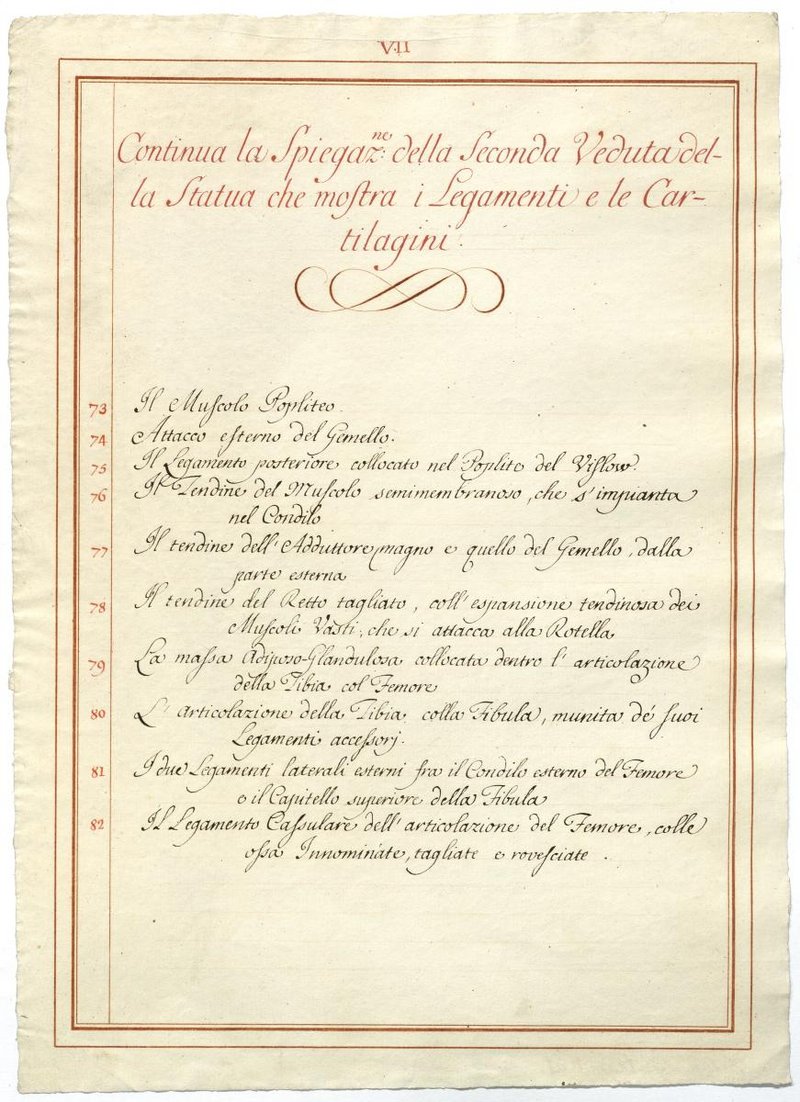 V.II
Continua la Spiegaz:ne della Seconda Veduta del-
la Statua che moſtra i Legamenti e le Car-
tilagini.
73 Il Muſcolo Popliteo.
74 Attacco eſterno del Gemello.
75 Il Legamento posteriore collocato nel Poplite del Viſlow.
76 Il Tendine del Muſcolo semimembranoso, che s'impianta
nel Condilo
77 Il tendine dell'Adduttore magno e quello del Gemello, dalla
parte esterna
78 Il tendine del Retto tagliato, coll'espansione tendinosa dei
Muſcoli Vasti, che si attacca alla Rotella
79 La massa Adiposo-Glandulosa collocata dentro l'articolazione
della Tibia col Femore
80 L'Articolazione della Tibia colla Fibula, munita de' ſuoi
Legamenti acceſsorj.
81 I due Legamenti laterali esterni fra il Condilo esterno del Femore
e il Capitello superiore della Fibula
82 Il Legamento Caſsulare dell'articolazione del Femore, colle
oſsa Innominate, tagliate e roveſciate.